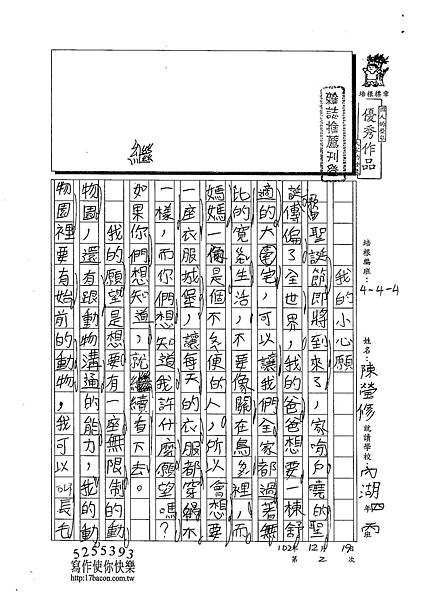 繼
雜誌推薦刊登
培根標章
優秀作品
培根編班：4-4-4
姓名：陳瑩修
就讀學校 內湖 四年 丙班
102年 12月 19日
第 2 次
我的小心願
聖誕節即將到來了，家喻戶曉的聖
誕傳偏了全世界，我的爸爸想要一棟舒
適的大豪宅，可以讓我們全家都過著無
比的寬裕生活，不要像關在鳥籠裡，而
媽媽一個是不方便的人，所以會想要
一座衣服城堡，讓每天的衣服都穿得不
一樣，而你們想知道我許什麼願望嗎？
如果你們想知道，就繼續看下去。
我的願望是想要有一座無限制的動
物園，還有跟動物溝通的能力，我的動
物園裡要有始前的動物，我可以叫長毛
5255393
寫作使你快樂
http://www.17bacon.com.tw